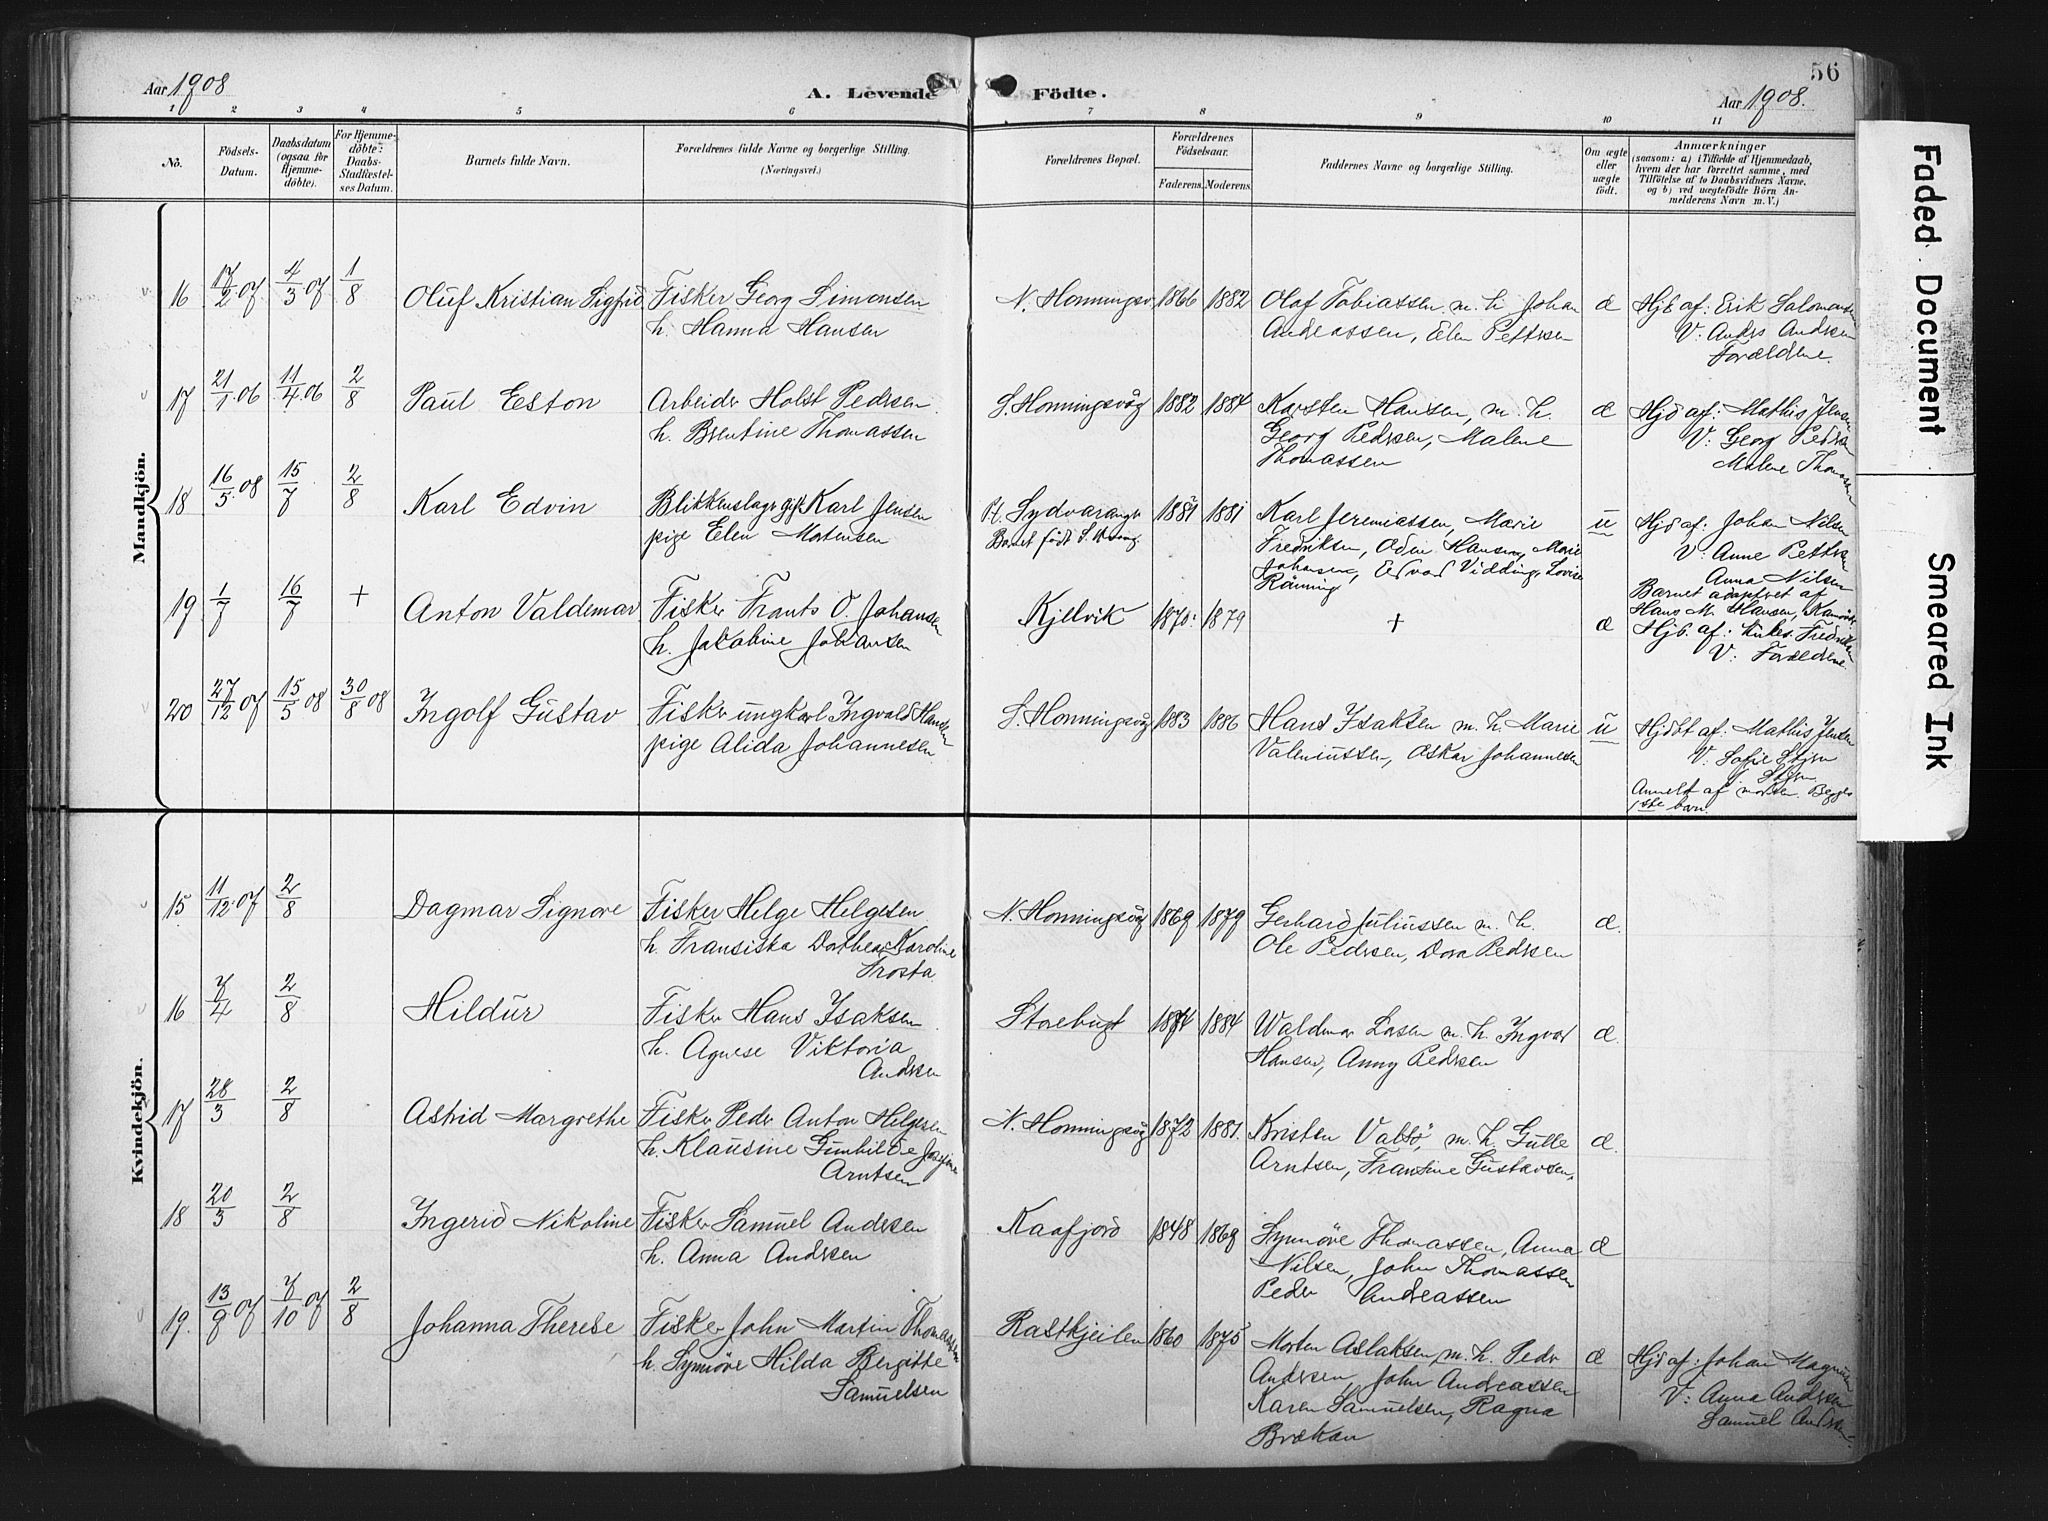 Aar 1908
A. Levende Födte.
Aar 1908.
56
1 2 3 4 5 6 7 8 9 10 11
No.
Födsels-Datum.
Daabsdatum (ogsaa for Hjemme-döbte).
For Hjemme-döbte: Daabs-Stadfæstel-ses Datum.
Barnets fulde Navn.
Forældrenes fulde Navne og borgerlige Stilling.
(Næringsvei.)
Forældrenes Bopæl.
Forældrenes Födselsaar.
Faderens. Moderens.
Faddernes Navne og borgerlig Stilling.
Om ægte eller uægte födt.
Anmærkninger
(saasom: a) i Tilfælde af Hjemmedaab,
hvem der har forrettet samme, med
Tilföielse af to Daabsvidners Navne,
og b) ved uægtefödte Börn An-
melderens Navn m. V.)
Mandkjön.
16 17/2 07 4/3 07 1/8 Oluf Kristian Sigfrid Fisker Georg Simonsen N. Honningsv. 1866 1882 Olaf Tobiassen m. h. Johan æ Hjd af: Erik Salomonsen
h. Hanna Hansen Andreassen, Elen Pettersen V: Anders Andersen
Forældrene.
17 21/1 06 11/4 06 2/8 Paul Eston Arbeider Holst Pedersen S. Honningsvåg 1882 1884 Karsten Hansen, m. h. æ Hjd af: Mathis Jensen
h. Berntine Thomassen Georg Pedersen, Malene V: Georg Peders
Thomassen Malene Thomassen
18 16/5 08 15/7 2/8 Karl Edvin Blikkenslager gift Karl Jensen Pt. Sydvaranger 1881 Karl Jeremiassen, Marie u Hjd af: Johan Nilsen
pige Elen Mortensen Barnet født S. Fredriksen, Odin Hansen, Marie V: Anne Petters
Johansen, Edvard Vidding, Lovise Anna Nilsen
Rönning Barnet adopteret af
Hans M. Hansen,
19 1/7 16/7 + Anton Valdemar Fisker Frants O. Johansen Kjelvik 1870 1879 + æ Hjd. af: Fredrik
h. Jakobine Johansen V: Forældrene.
20 27/12 07 15/5 08 30/8 08 Ingolf Gustav Fisker ungkarl Ingvald Hansen S. Honningsvåg 1883 1886 Hans Isaksen m. h. Marie u Hjdbt af: Mathis Jensen
pige Alida Johannesen Valeniussen, Oskar Johannesen V: Sofie Stjern
Stjern
Anmeldt af moren. Begges
1ste barn.
Kvindekjön.
15 11/12 07 2/8 Dagmar Signore Fisker Helge Helgesen N. Honningsvåg 1869 1879 Gerhard Juliussen m. h. æ.
h. Fransiska Dorthea Karoline Ole Pedersen, Dora Pedersen
Frosta
16 7/4 2/8 Hildur Fisker Hans Isaksen Storebugt 1874 1884 Waldemar Larsen m. h. Ingvar æ.
h. Agnese Viktoria Hansen, Anny Pedersen
Andersen
17 28/3 2/8 Astrid Margrethe Fisker Peder Anton Helgesen N. Honningsvåg 1872 1881. Kristen Valsö, m. h. Gulle æ.
h. Klausine Gunhilde Josefine Arntsen, Frantine Gustavsen,
Arntsen
18 20/3 2/8 Ingerid Nikoline Fisker Samuel Andersen Kaafjord 1848 1869 Synnöve Thomassen, Anna æ
h. Anna Andersen Nilsen, John Thomassen
Peder Andreassen
19. 13/9 07 7/10 07 2/8 Johanna Therese Fisker John Martin Thomassen Rastkjeilen 1860 1875 Morten Aslaksen m. h. Peder æ Hjd af: Johan Magnusen
h. Synnöve Hilda Bergitte Andersen, John Andreassen V: Anna Andersen
Samuelsen Karen Samuelsen, Ragna Samuel Andersen
Brækan
Faded Document
Smeared Ink